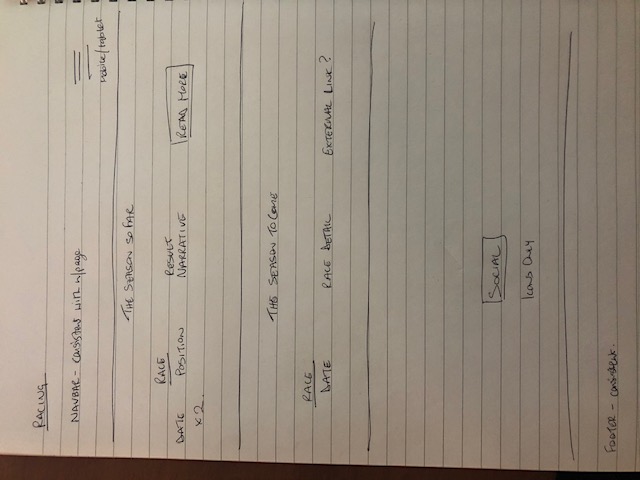 RACING
NAVBAR - consistent with w/page
Mobile/tablet
THE SEASON SO FAR
RACE
DATE POSITION RESULT NARRATIVE READ MORE
x2.
THE SEASON TO COME
RACE
DATE RACE DETAIL EXTERNAL LINK?
SOCIAL
Icons Only
FOOTER - consistent.